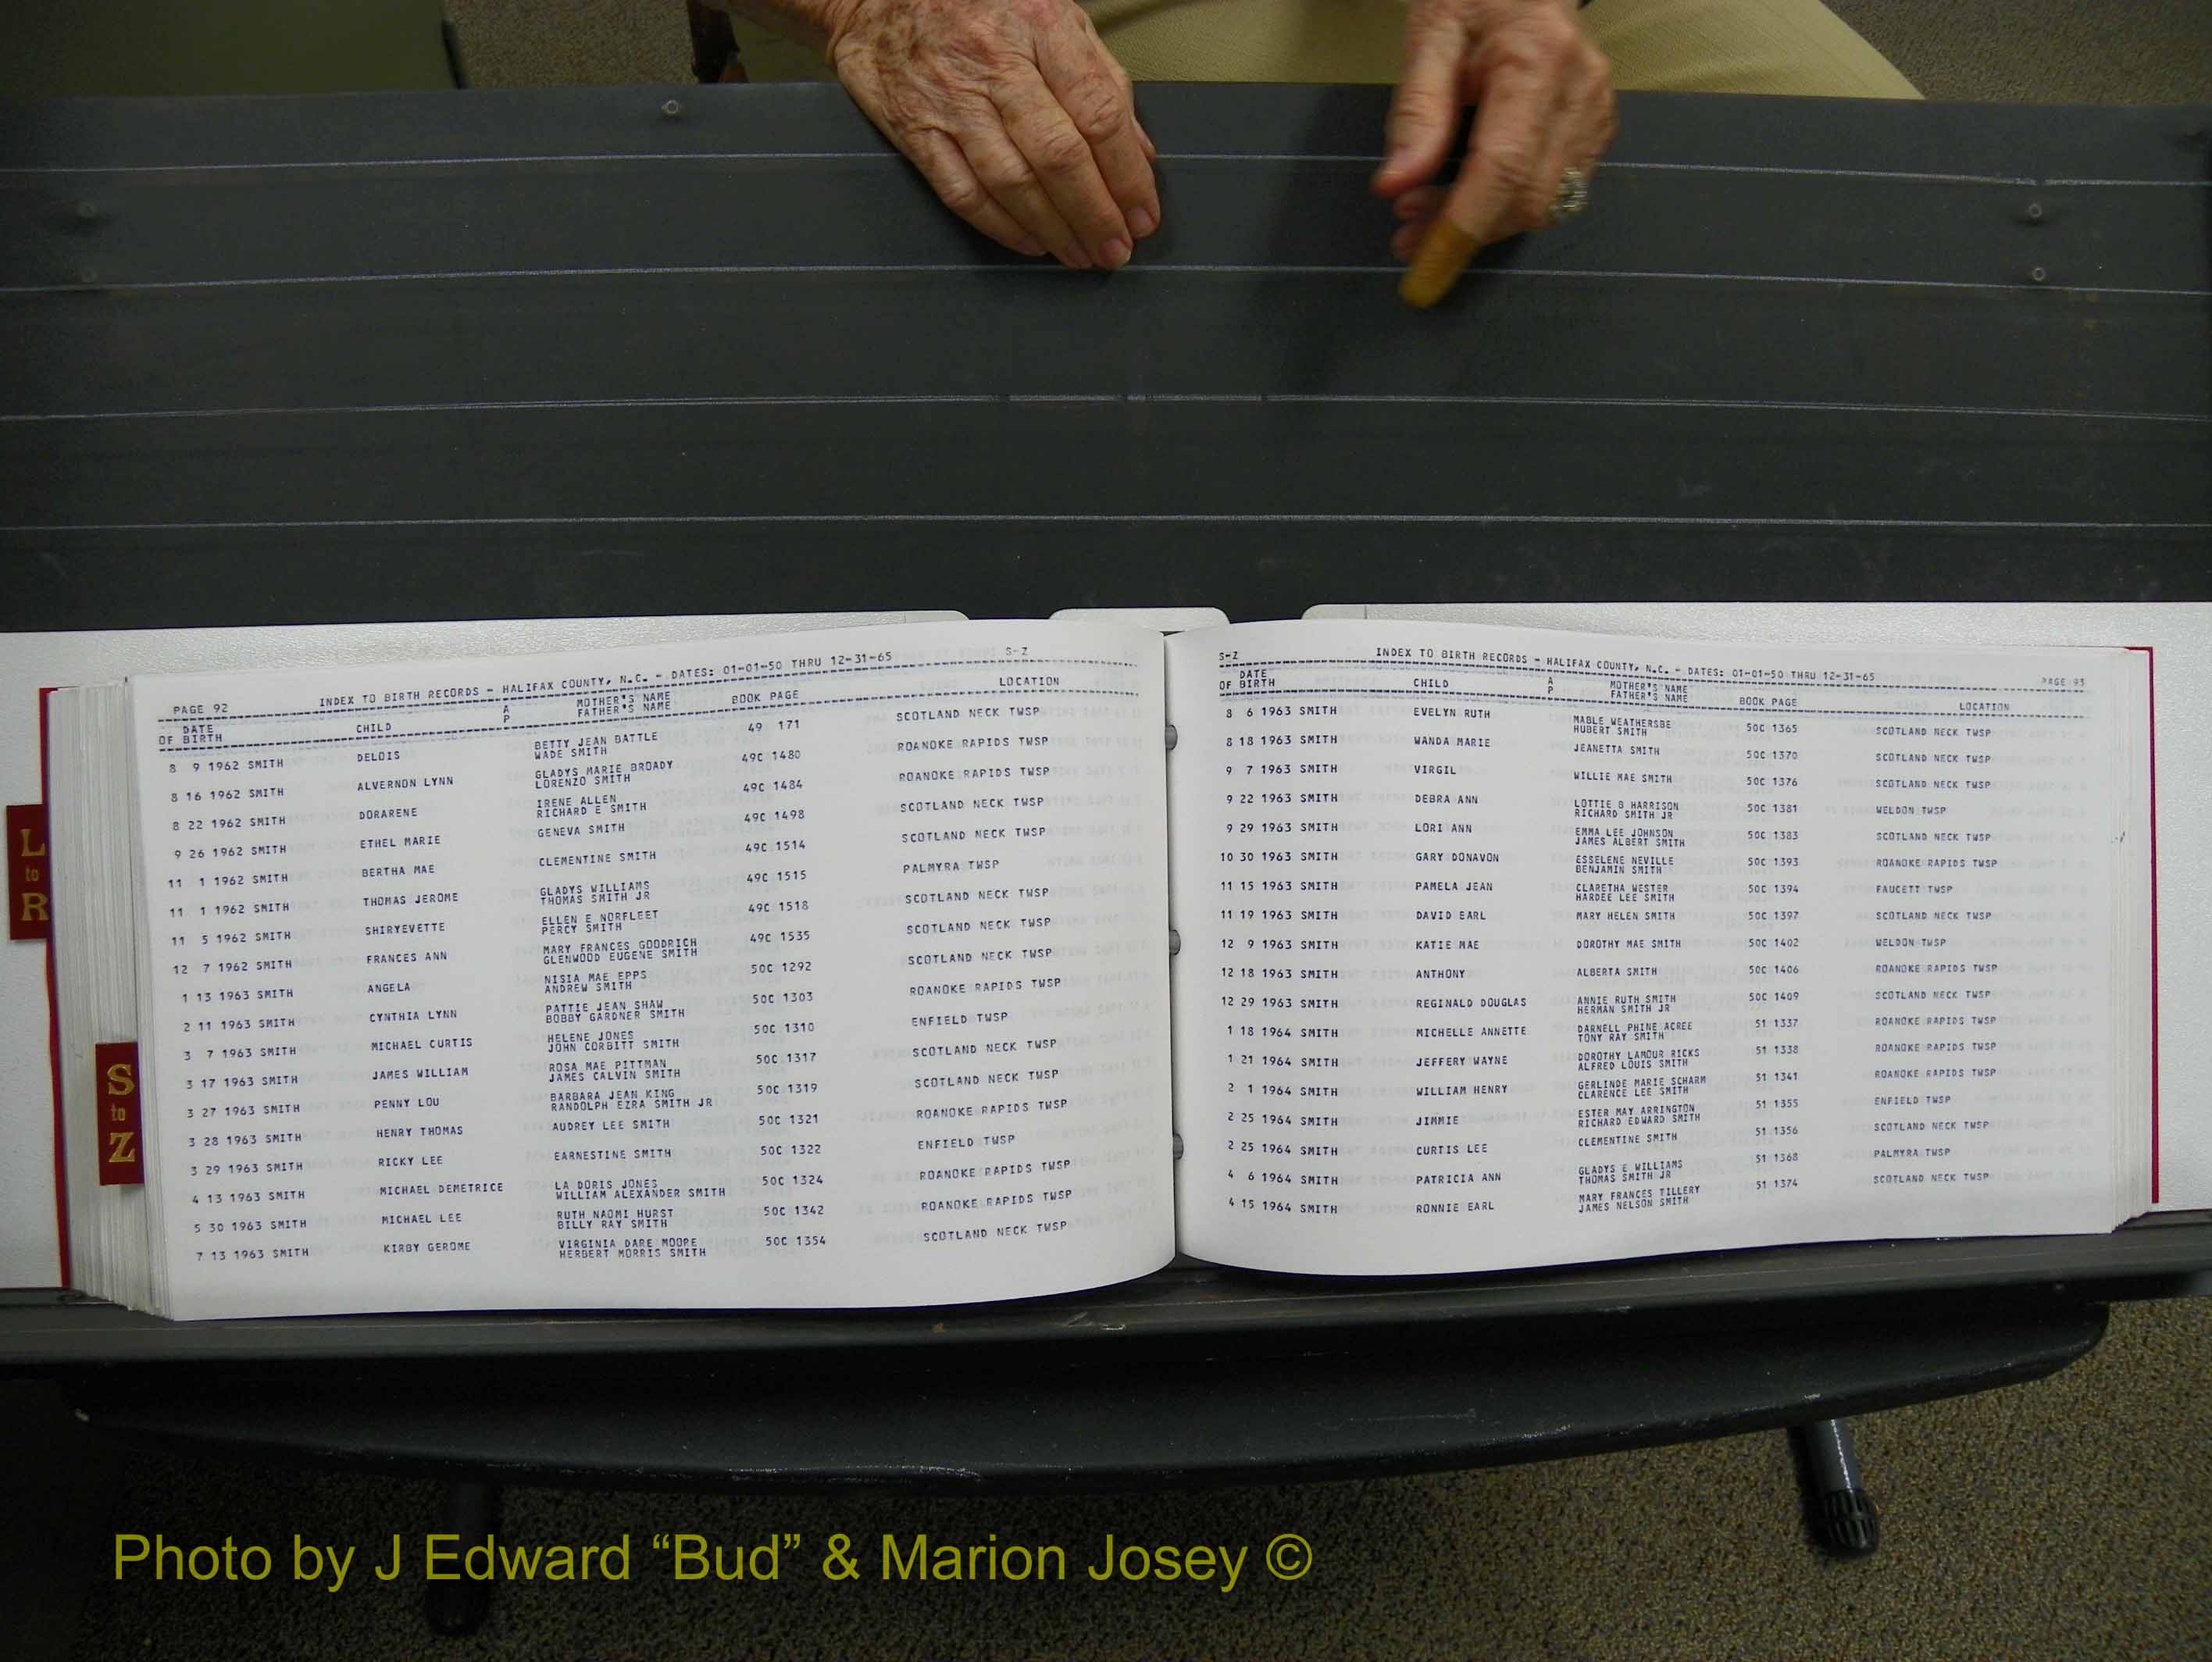 L
to
R
S
to
Z
PAGE 92 INDEX TO BIRTH RECORDS - HALIFAX COUNTY, N.C. - DATES: 01-01-50 THRU 12-31-65 S-Z
DATE OF BIRTH CHILD A P MOTHER'S NAME FATHER'S NAME BOOK PAGE LOCATION
8 9 1962 SMITH DELOIS BETTY JEAN BATTLE WADE SMITH 49 171 SCOTLAND NECK TWSP
8 16 1962 SMITH ALVERNON LYNN GLADYS MARIE BROADY LORENZO SMITH 49C 1480 ROANOKE RAPIDS TWSP
8 22 1962 SMITH DORARENE IRENE ALLEN RICHARD E SMITH 49C 1484 ROANOKE RAPIDS TWSP
9 26 1962 SMITH ETHEL MARIE GENEVA SMITH 49C 1498 SCOTLAND NECK TWSP
11 1 1962 SMITH BERTHA MAE CLEMENTINE SMITH 49C 1514 SCOTLAND NECK TWSP
11 1 1962 SMITH THOMAS JEROME GLADYS WILLIAMS THOMAS SMITH JR 49C 1515 PALMYRA TWSP
11 5 1962 SMITH SHIRYEVETTE ELLEN E NORFLEET PERCY SMITH 49C 1518 SCOTLAND NECK TWSP
12 7 1962 SMITH FRANCES ANN MARY FRANCES GOODRICH GLENWOOD EUGENE SMITH 49C 1535 SCOTLAND NECK TWSP
1 13 1963 SMITH ANGELA NISIA MAE EPPS ANDREW SMITH 50C 1292 SCOTLAND NECK TWSP
2 11 1963 SMITH CYNTHIA LYNN PATTIE JEAN SHAW BOBBY GARDNER SMITH 50C 1303 ROANOKE RAPIDS TWSP
3 7 1963 SMITH MICHAEL CURTIS HELENE JONES JOHN CORBITT SMITH 50C 1310 ENFIELD TWSP
3 17 1963 SMITH JAMES WILLIAM ROSA MAE PITTMAN JAMES CALVIN SMITH 50C 1317 SCOTLAND NECK TWSP
3 27 1963 SMITH PENNY LOU BARBARA JEAN KING RANDOLPH EZRA SMITH JR 50C 1319 SCOTLAND NECK TWSP
3 28 1963 SMITH HENRY THOMAS AUDREY LEE SMITH 50C 1321 ROANOKE RAPIDS TWSP
3 29 1963 SMITH RICKY LEE EARNESTINE SMITH 50C 1322 ENFIELD TWSP
4 13 1963 SMITH MICHAEL DEMETRICE LA DORIS JONES WILLIAM ALEXANDER SMITH 50C 1324 ROANOKE RAPIDS TWSP
5 30 1963 SMITH MICHAEL LEE RUTH NAOMI HURST BILLY RAY SMITH 50C 1342 ROANOKE RAPIDS TWSP
7 13 1963 SMITH KIRBY GEROME VIRGINIA DARE MOORE HERBERT MORRIS SMITH 50C 1354 SCOTLAND NECK TWSP
S-Z INDEX TO BIRTH RECORDS - HALIFAX COUNTY, N.C. - DATES: 01-01-50 THRU 12-31-65 PAGE 93
DATE OF BIRTH CHILD A P MOTHER'S NAME FATHER'S NAME BOOK PAGE LOCATION
8 6 1963 SMITH EVELYN RUTH MABLE WEATHERSBE HUBERT SMITH 50C 1365 SCOTLAND NECK TWSP
8 18 1963 SMITH WANDA MARIE JEANETTA SMITH 50C 1370 SCOTLAND NECK TWSP
9 7 1963 SMITH VIRGIL WILLIE MAE SMITH 50C 1376 SCOTLAND NECK TWSP
9 22 1963 SMITH DEBRA ANN LOTTIE B HARRISON RICHARD SMITH JR 50C 1381 WELDON TWSP
9 29 1963 SMITH LORI ANN EMMA LEE JOHNSON JAMES ALBERT SMITH 50C 1383 SCOTLAND NECK TWSP
10 30 1963 SMITH GARY DONAVON ESSELENE NEVILLE BENJAMIN SMITH 50C 1393 ROANOKE RAPIDS TWSP
11 15 1963 SMITH PAMELA JEAN CLARETHA WESTER HARDEE LEE SMITH 50C 1394 FAUCETT TWSP
11 19 1963 SMITH DAVID EARL MARY HELEN SMITH 50C 1397 SCOTLAND NECK TWSP
12 9 1963 SMITH KATIE MAE DOROTHY MAE SMITH 50C 1402 WELDON TWSP
12 18 1963 SMITH ANTHONY ALBERTA SMITH 50C 1406 ROANOKE RAPIDS TWSP
12 29 1963 SMITH REGINALD DOUGLAS ANNIE RUTH SMITH HERMAN SMITH JR 50C 1409 SCOTLAND NECK TWSP
1 18 1964 SMITH MICHELLE ANNETTE DARNELL PHINE ACREE TONY RAY SMITH 51 1337 ROANOKE RAPIDS TWSP
1 21 1964 SMITH JEFFERY WAYNE DOROTHY LAMOUR RICKS ALFRED LOUIS SMITH 51 1338 ROANOKE RAPIDS TWSP
2 1 1964 SMITH WILLIAM HENRY GERLINDE MARIE SCHARM CLARENCE LEE SMITH 51 1341 ROANOKE RAPIDS TWSP
2 25 1964 SMITH JIMMIE ESTER MAY ARRINGTON RICHARD EDWARD SMITH 51 1355 ENFIELD TWSP
2 25 1964 SMITH CURTIS LEE CLEMENTINE SMITH 51 1356 SCOTLAND NECK TWSP
4 6 1964 SMITH PATRICIA ANN GLADYS E WILLIAMS THOMAS SMITH JR 51 1368 PALMYRA TWSP
4 15 1964 SMITH RONNIE EARL MARY FRANCES TILLERY JAMES NELSON SMITH 51 1374 SCOTLAND NECK TWSP
Photo by J Edward “Bud” & Marion Josey ©